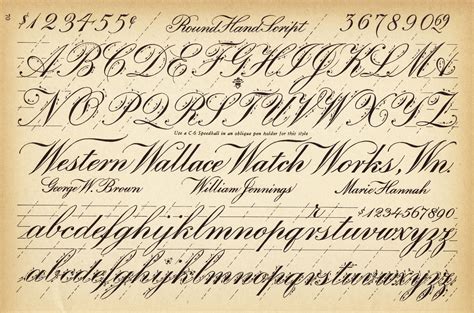 $123455¢ Round Hand Script 3678906⁹
ABCDEFGHIJKLM
NOPQRSTUVWXYZ
Use a C-6 Speedball in an oblique pen holder for this style
Western Wallace Watch Works, Wn.
George W. Brown William Jennings Marie Hannah
r $1234567890
abcdefghijklmnopqrstuvwxyzz
abcdefghijklmnopqrstuvwxyzz